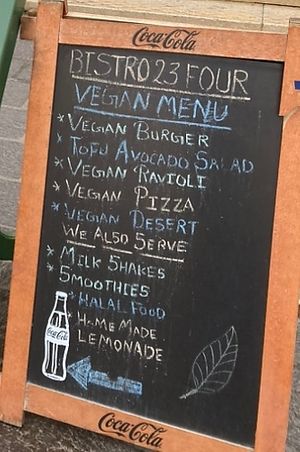 Coca-Cola
BISTRO 23 FOUR
VEGAN MENU
* VEGAN BURGER
* TOFU AVOCADO SALAD
* VEGAN RAVIOLI
* VEGAN PIZZA
* VEGAN DESERT
WE ALSO SERVE
* MILK SHAKES
* SMOOTHIES
* HALAL FOOD
* HOME MADE
LEMONADE
Coca-Cola
Coca-Cola